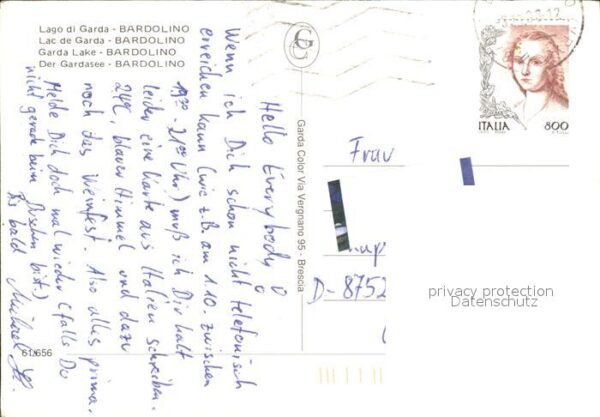 Lago di Garda - BARDOLINO
Lac de Garda - BARDOLINO
Garda Lake - BARDOLINO
Der Gardasee - BARDOLINO
Hello Everybody !
Wenn ich Dich schon nicht telefonisch
erreichen kann (wie z.B. am 1.10. zwischen
19³⁰ - 21⁰⁰ Uhr) muß ich Dir halt
leider eine Karte aus Italien schreiben.
24°C, blauer Himmel und dazu
noch das Weinfest. Also alles prima.
Melde Dich doch mal wieder (falls Du
nicht gerade beim Duschen bist.)
Bis bald
Michael
61/656
Garda Color Via Vergnano 95 - Brescia
ITALIA 800
Frau
D-8752
privacy protection
Datenschutz